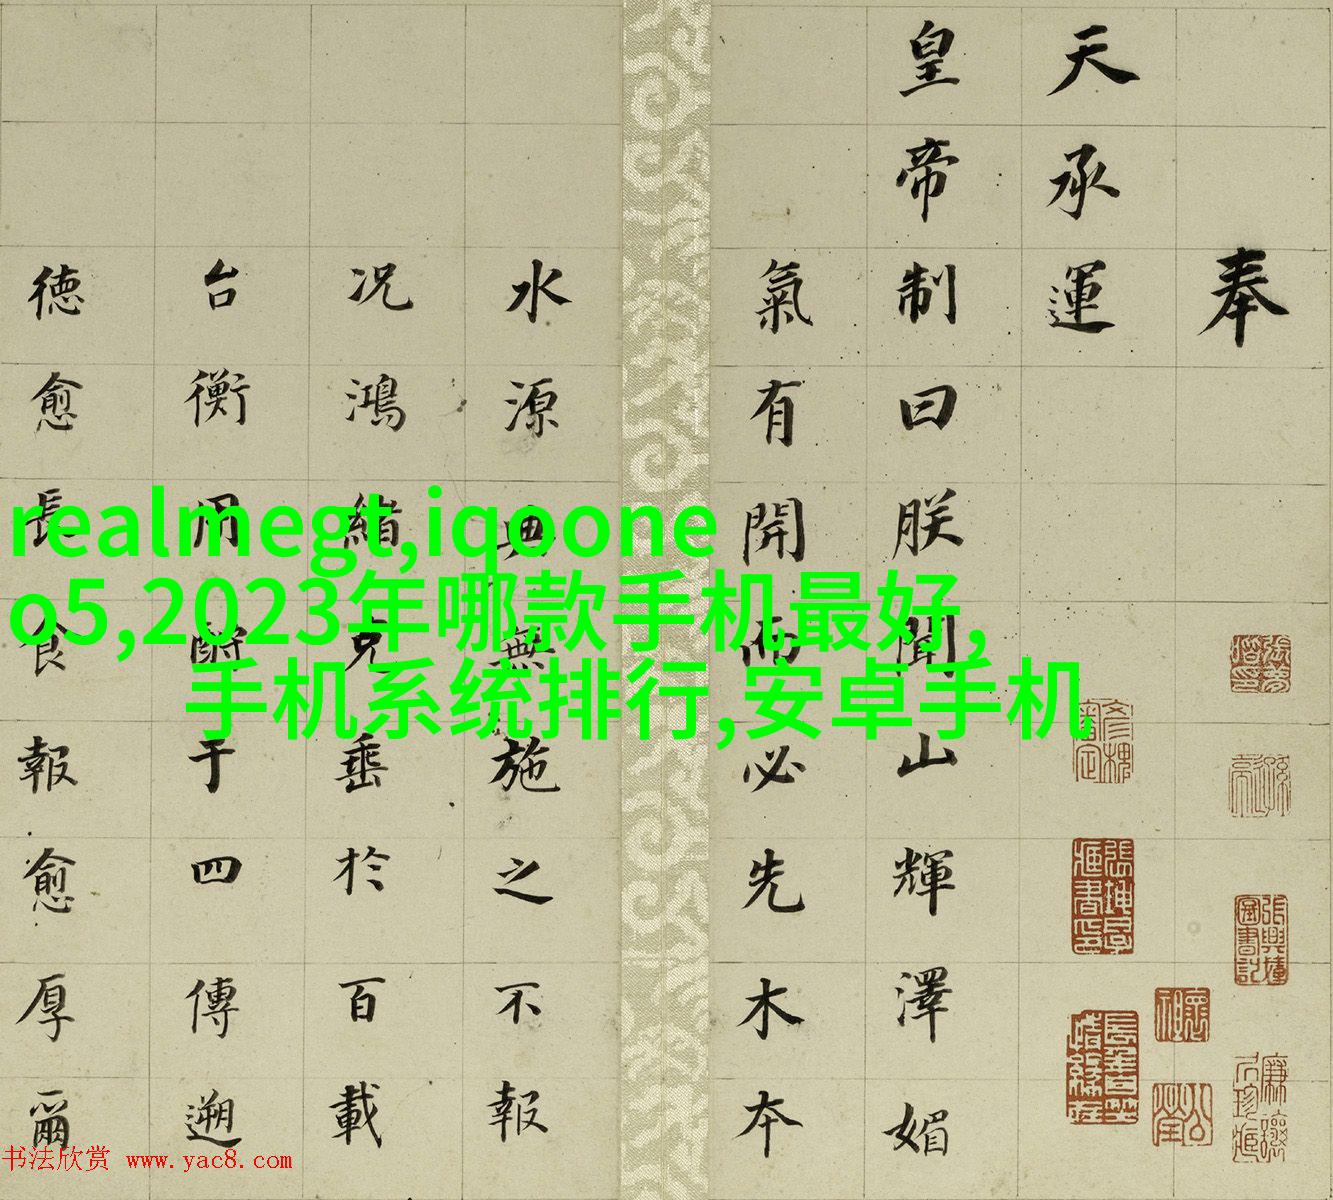 奉
天承運
皇帝制曰朕聞山輝澤媚
氣有開而必先木本
水源典無施之不報
况鴻緒克垂於百載
台衡用酬于四傳遡
德愈長食報愈厚爾
realmegt,iqoone
o5,2023年哪款手机最好,
手机系统排行,安卓手机,
书法欣赏 www.yac8.com